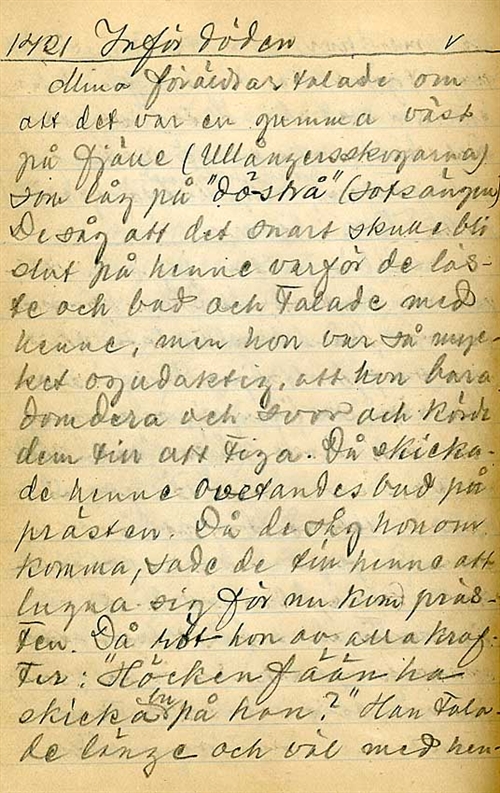 1421 Inför döden v
Mina föräldrar talade om
att det var en gumma väst
på fjäne (Ullångersskogarna)
som låg på "dö-strå" (sotsängen)
De såg att det snart skulle bli
slut på henne varför de läs-
te och bad och talade med
henne, men hon var så myc-
ket ogudaktig, att hon bara
domdera och svor och körde
dem till att tiga. Då skicka-
de henne ovetandes bud på
prästen. Då de såg honom
komma, sade de till henne att
lugna sig för nu kom präs-
ten. Då röt hon av alla kraf-
ter: "Höcken fään ha
skickä bu på han?" Han tala-
de länge och väl med hen-